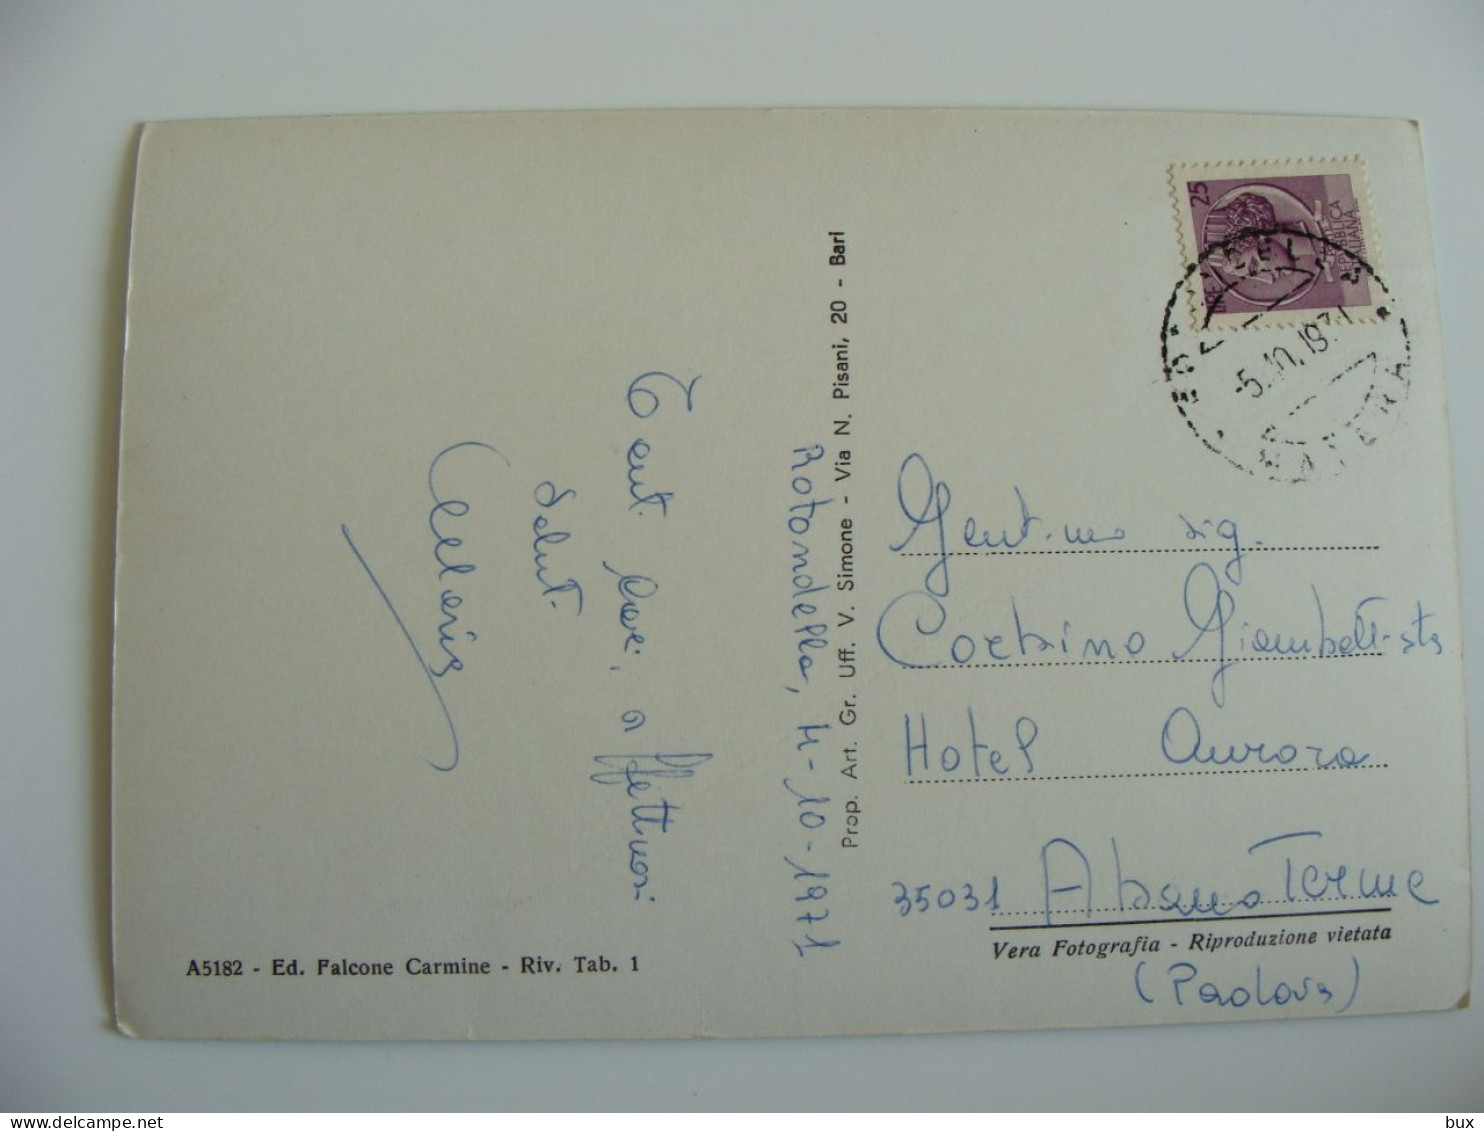 Rotondella, 4-10-1971
Tanti cari, affettuosi
Saluti
Prop. Art. Gr. Uff. V. Simone - Via N. Pisani, 20 - Bari
LIRE 25
REPUBBLICA
ITALIANA
-5.10.1971
MATERA
Gent.mo sig.
Giambattista
Hotel Aurora
35031 Abano Terme
Vera Fotografia - Riproduzione vietata
(Padova)
A5182 - Ed. Falcone Carmine - Riv. Tab. 1
bux